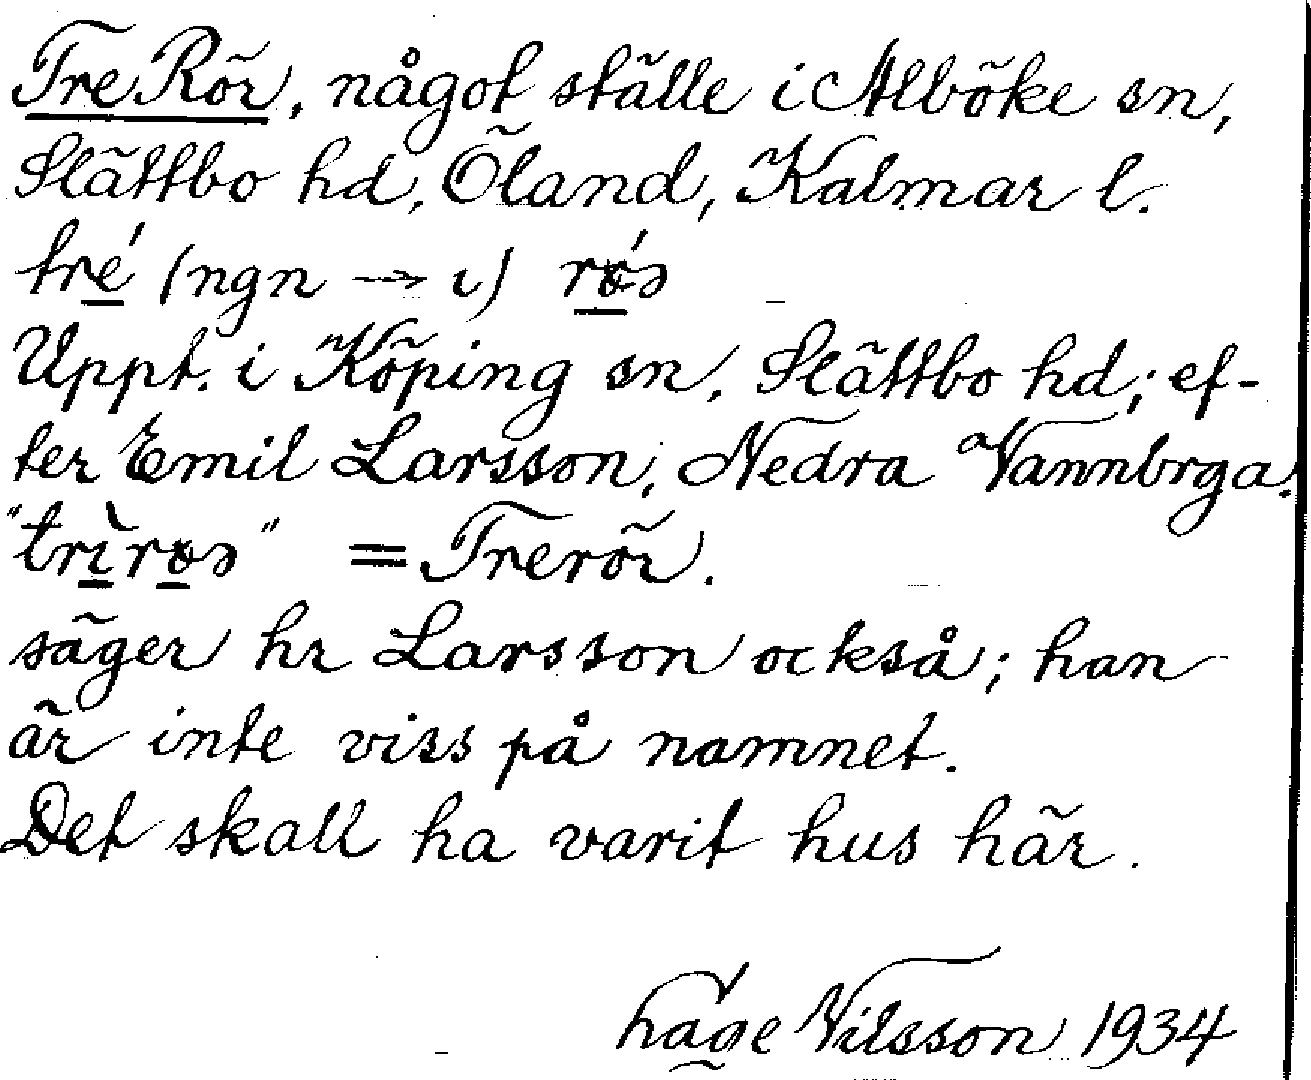 Tre Rör, något ställe i Alböke sn,
Slättbo hd, Öland, Kalmar l.
tré (ngn → ı) rɤ́ɘ
Uppt. i Köping sn, Slättbo hd; ef-
ter Emil Larsson, Nedra Vannbrga.
"trı̀rɤɘ" = Trerör.
säger hr Larsson också; han
är inte viss på namnet.
Det skall ha varit hus här.
Nilsson 1934